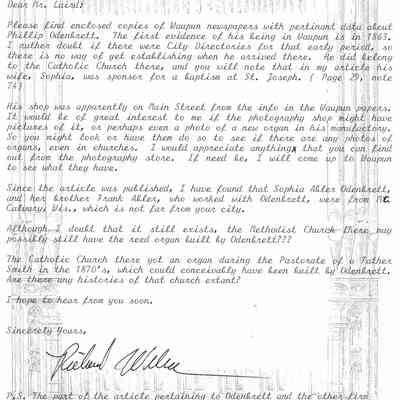 Dear Mr. Laird:
Please find enclosed copies of Waupun newspapers with pertinent data about
Phillip Odenbrett. The first evidence of his being in Waupun is in 1863.
I rather doubt if there were City Directories for that early period, so
there is no way of yet establishing when he arrived there. He did belong
to the Catholic Church there, and you will note that in my article his
wife, Sophia, was sponsor for a baptism at St. Joseph. ( Page 29, note
74)
His shop was apparently on Main Street from the info in the Waupun papers.
It would be of great interest to me if the photography shop might have
pictures of it, or perhaps even a photo of a new organ in his manufactory.
So you might look or have them do so to see if there are any photos of
organs, even in churches. I would appreciate anything that you can find
out from the photography store. If need be, I will come up to Waupun
to see what they have.
Since the article was published, I have found that Sophia Abler Odenbrett,
and her brother Frank Abler, who worked with Odenbrett, were from Mt.
Calvary, Wis., which is not far from your city.
Although I doubt that it still exists, the Methodist Church there may
possibly still have the reed organ built by Odenbrett???
The Catholic Church there got an organ during the Pastorate of a Father
Smith in the 1870's, which could conceivably have been built by Odenbrett.
Are there any histories of that church extant?
I hope to hear from you soon.
Sincerely Yours,
Richard
P.S. The part of the article pertaining to Odenbrett and the other firm